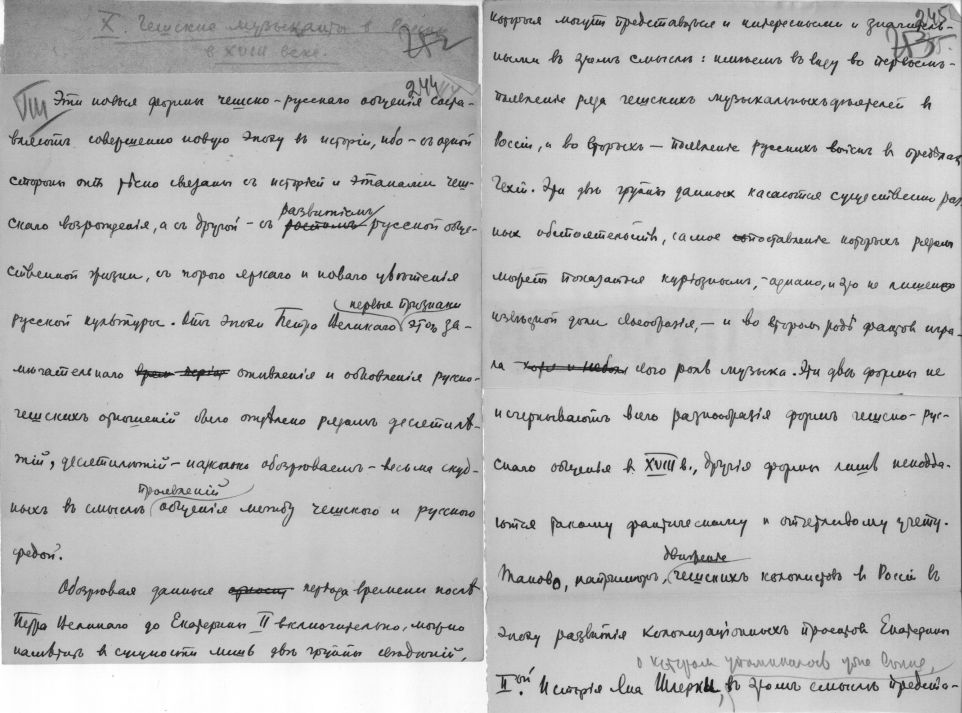 X. Чешские музыканты в России
в XVIII веке.
244
VIII Эти новыя формы чешско-русскаго общенія соста-
вляютъ совершенно новую эпоху въ исторіи, ибо – съ одной
стороны онѣ тѣсно связаны съ исторіей и этапами чеш-
скаго возрожденія, а съ другой – съ развитіемъ русской обще-
ственной жизни, съ порою яркаго и новаго цвѣтенія
русской культуры. Отъ эпохи Петра Великаго первые признаки этого за-
мѣчательнаго оживленія и обновленія русско-
чешскихъ отношеній было отдѣлено рядомъ десятилѣ-
тій, десятилѣтій – насколько обозрѣваемъ – весьма скуд-
ныхъ въ смыслѣ проявленій общенія между чешскою и русскою
средой.
Обозрѣвая данныя періода времени послѣ
Петра Великаго до Екатерины II включительно, можно
намѣтить в сущности лишь двѣ группы свѣдѣній,
245
которыя могутъ представиться и интересными и значитель-
ными въ этомъ смыслѣ: имѣемъ въ виду во первыхъ –
появленіе ряда чешскихъ музыкальныхъ дѣятелей в
Россіи, и во вторыхъ – появленіе русскихъ войскъ в предѣлах
Чехіи. Эти двѣ группы данныхъ касаются существенно раз
ныхъ обстоятельствъ, самое сопоставленіе которыхъ рядомъ
можетъ показаться курьезнымъ, – однако, и это не лишено
извѣстной доли своеобразія, – и во второмъ родѣ фактов игра-
ла свою роль музыка. Эти двѣ формы не
исчерпываютъ всего разнообразія формъ чешско-рус-
скаго общенія в XVIII в., другія формы лишь неподда-
ются такому фактическому и отчетливому учету.
Таково, напримѣръ, движеніе чешскихъ колонистов в Россіи въ
эпоху развитія колонизаціонныхъ проектов Екатерины
о котором упоминалось уже выше,
II-ой. Исторія Яна въ этомъ смыслѣ предста-